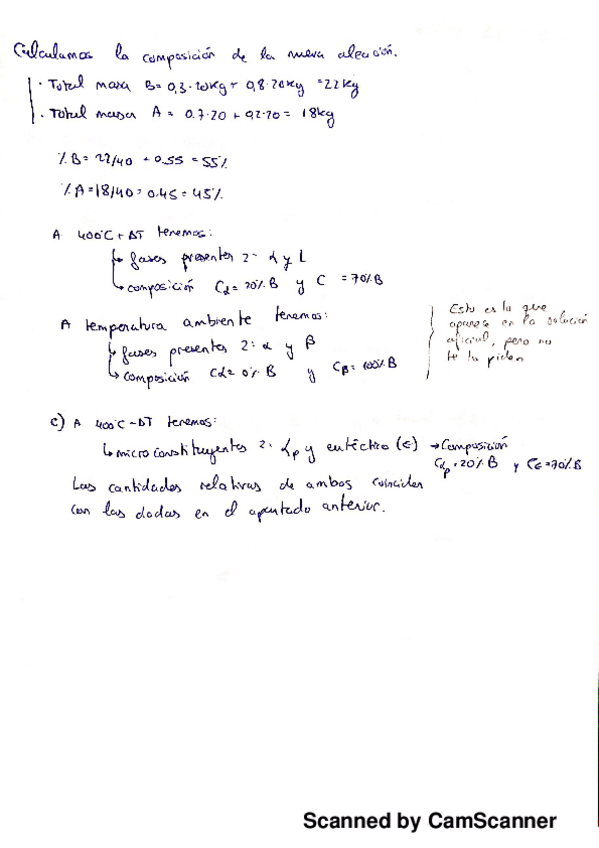 Calculamos la composición de la nueva aleación.
· Total masa B = 0,3·20kg + 0,8·20kg = 22kg
· Total masa A = 0.7·20 + 0,2·20 = 18kg
% B = 22/40 = 0.55 = 55%
% A = 18/40 = 0.45 = 45%
A 400ºC + ΔT tenemos:
↳ fases presentes 2: α y L
↳ composición Cα = 20% B y C = 70% B
A temperatura ambiente tenemos:
↳ fases presentes 2: α y β
↳ composición Cα = 0% B y Cβ = 100% B
Esto es lo que
aparece en la solución
oficial, pero no
te lo piden
c) A 400ºC - ΔT tenemos:
↳ microconstituyentes 2: αp y eutéctico (E) → Composición
Cαp = 20% B y CE = 70% B
Las cantidades relativas de ambos coinciden
con las dadas en el apartado anterior.
Scanned by CamScanner